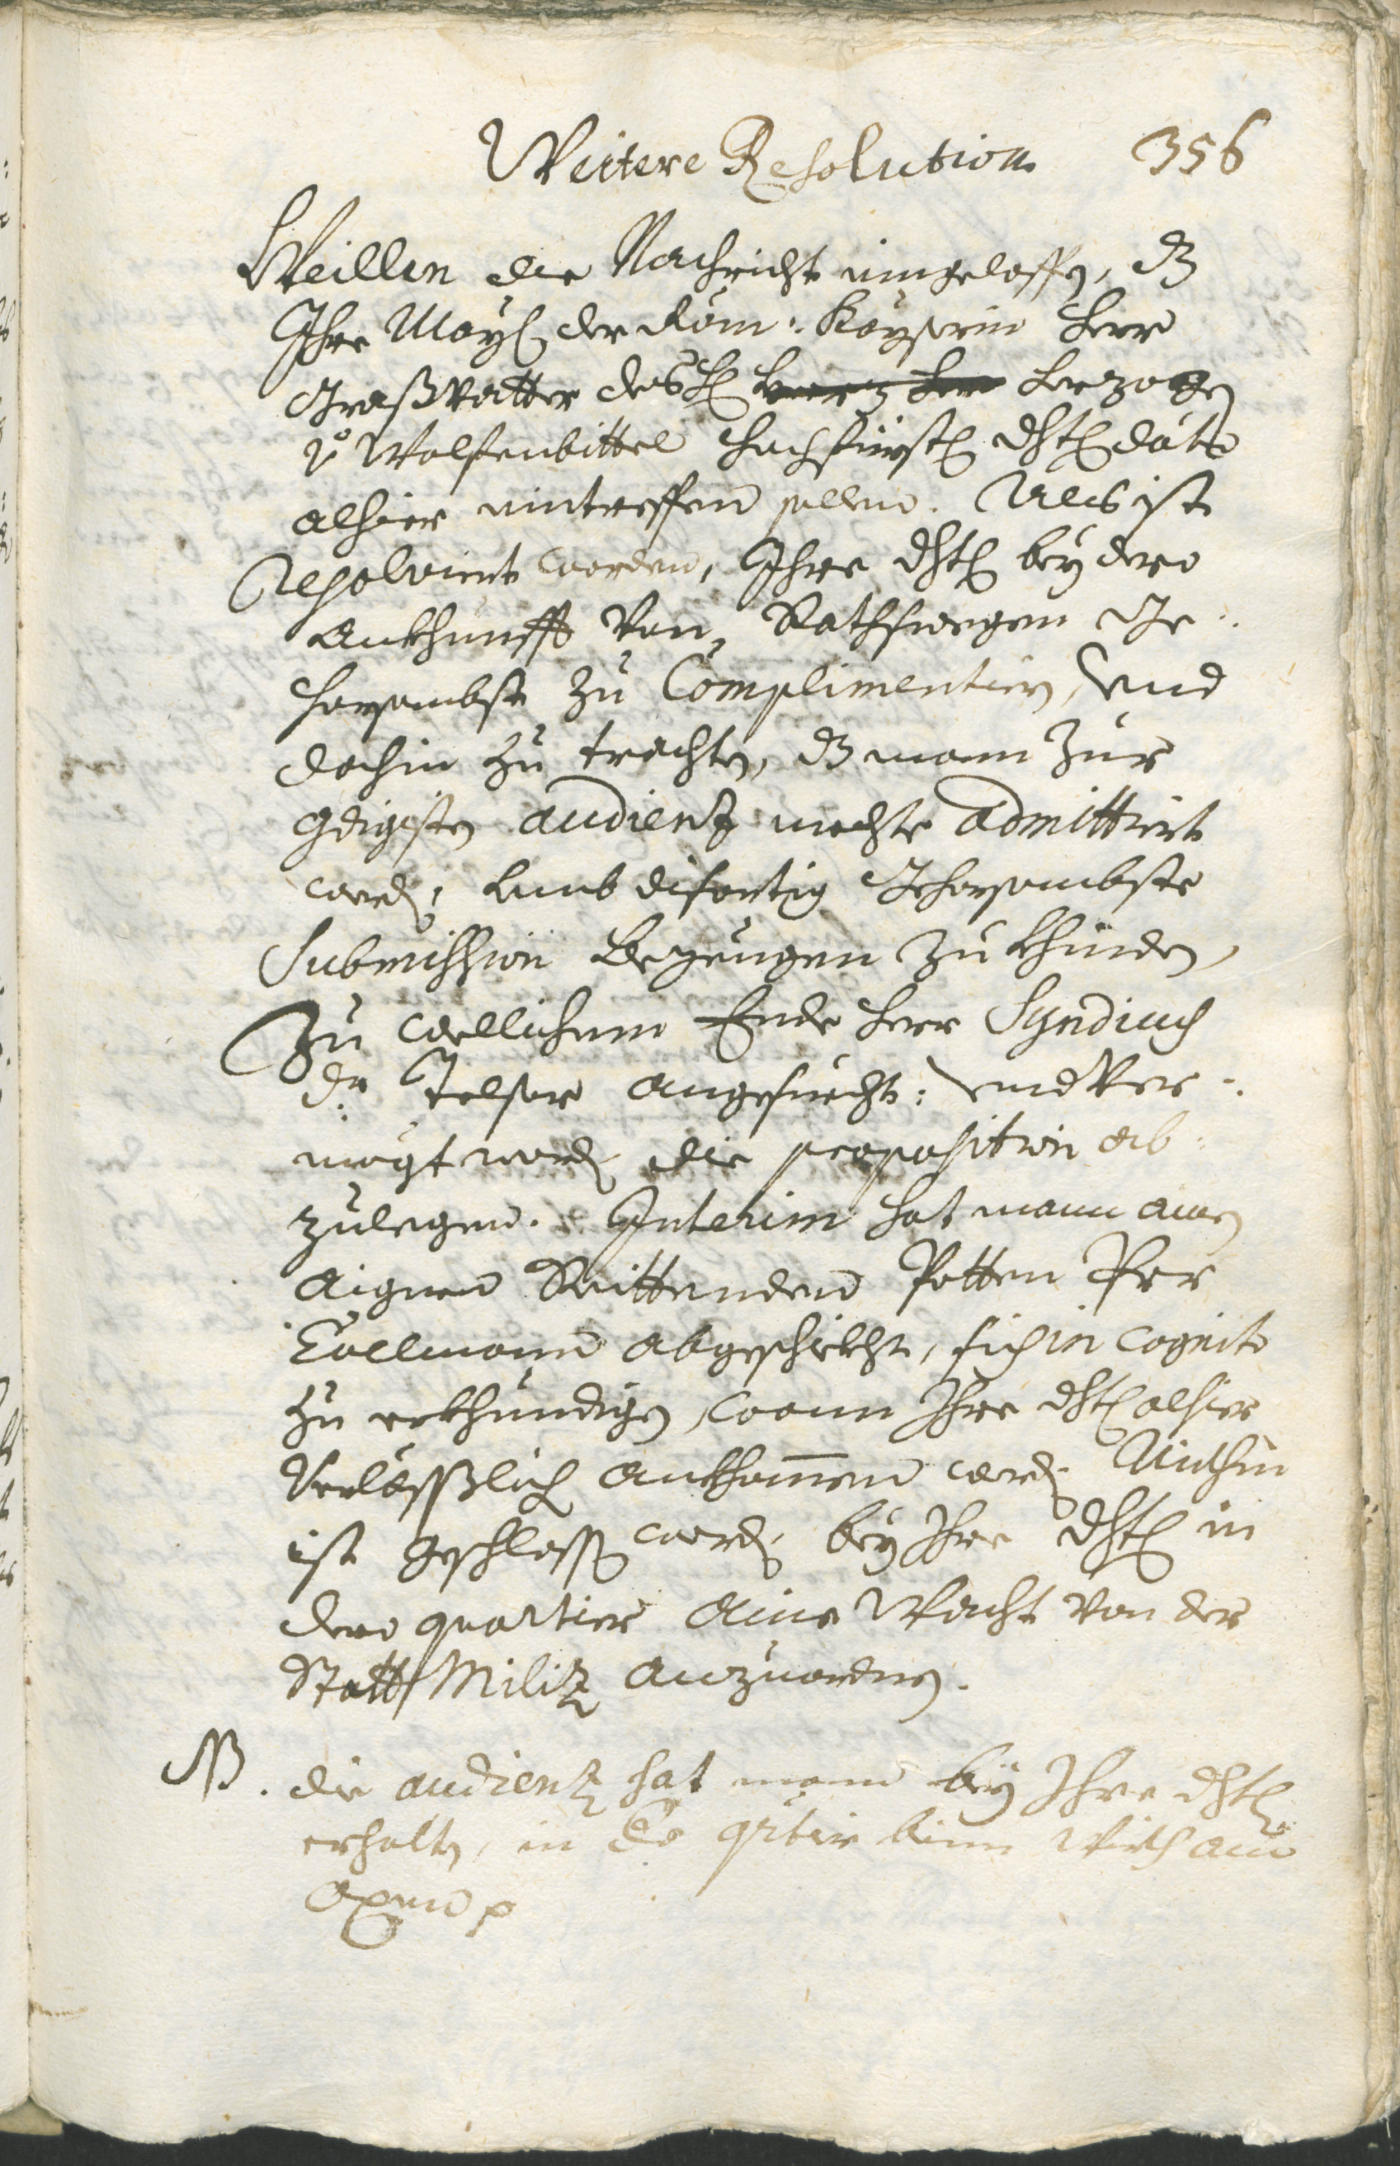 Weitere Resolution 356
Weillen die Nachricht eingeloffen, dß
Ihre Mayt. der Röm: Kayserin Herr
Großvatter des H. Herzogen
v. Wolfenbittel Hochfürstl. dhtl. dato
alhier eintreffen sollen. Als ist
Resolviert worden, Ihre dhtl. bey dero
Ankhunfft von Rathswegen Ge-
horsambst zu Complimentiern, Und
dahin zu trachten, dß mann zur
gdigisten audientz mechte admittiert
werden, umb disortig Gehorsambste
Submission bezeugen zu khinden,
Zu wellichem Ende Herr Syndicus
dr. Jelser angesuecht: und ver-
mögt worden die proposition ab-
zulegen. Interim hat mann ainen
aignen Reittenden Potten Per
Collmann abgeschickht, sich in cognito
zu erkhundigen, wann Ihre dhtl. alhier
Verlässlich ankhommen werden. Mithin
ist geschlossen worden, bey Ihre dhtl. in
dero quartier Aine Wacht von der
Statt Militz anzuordnen.
NB. die audientz hat mann bey Ihre dhtl.
erhalten, in dero qrtier beim Wirth am